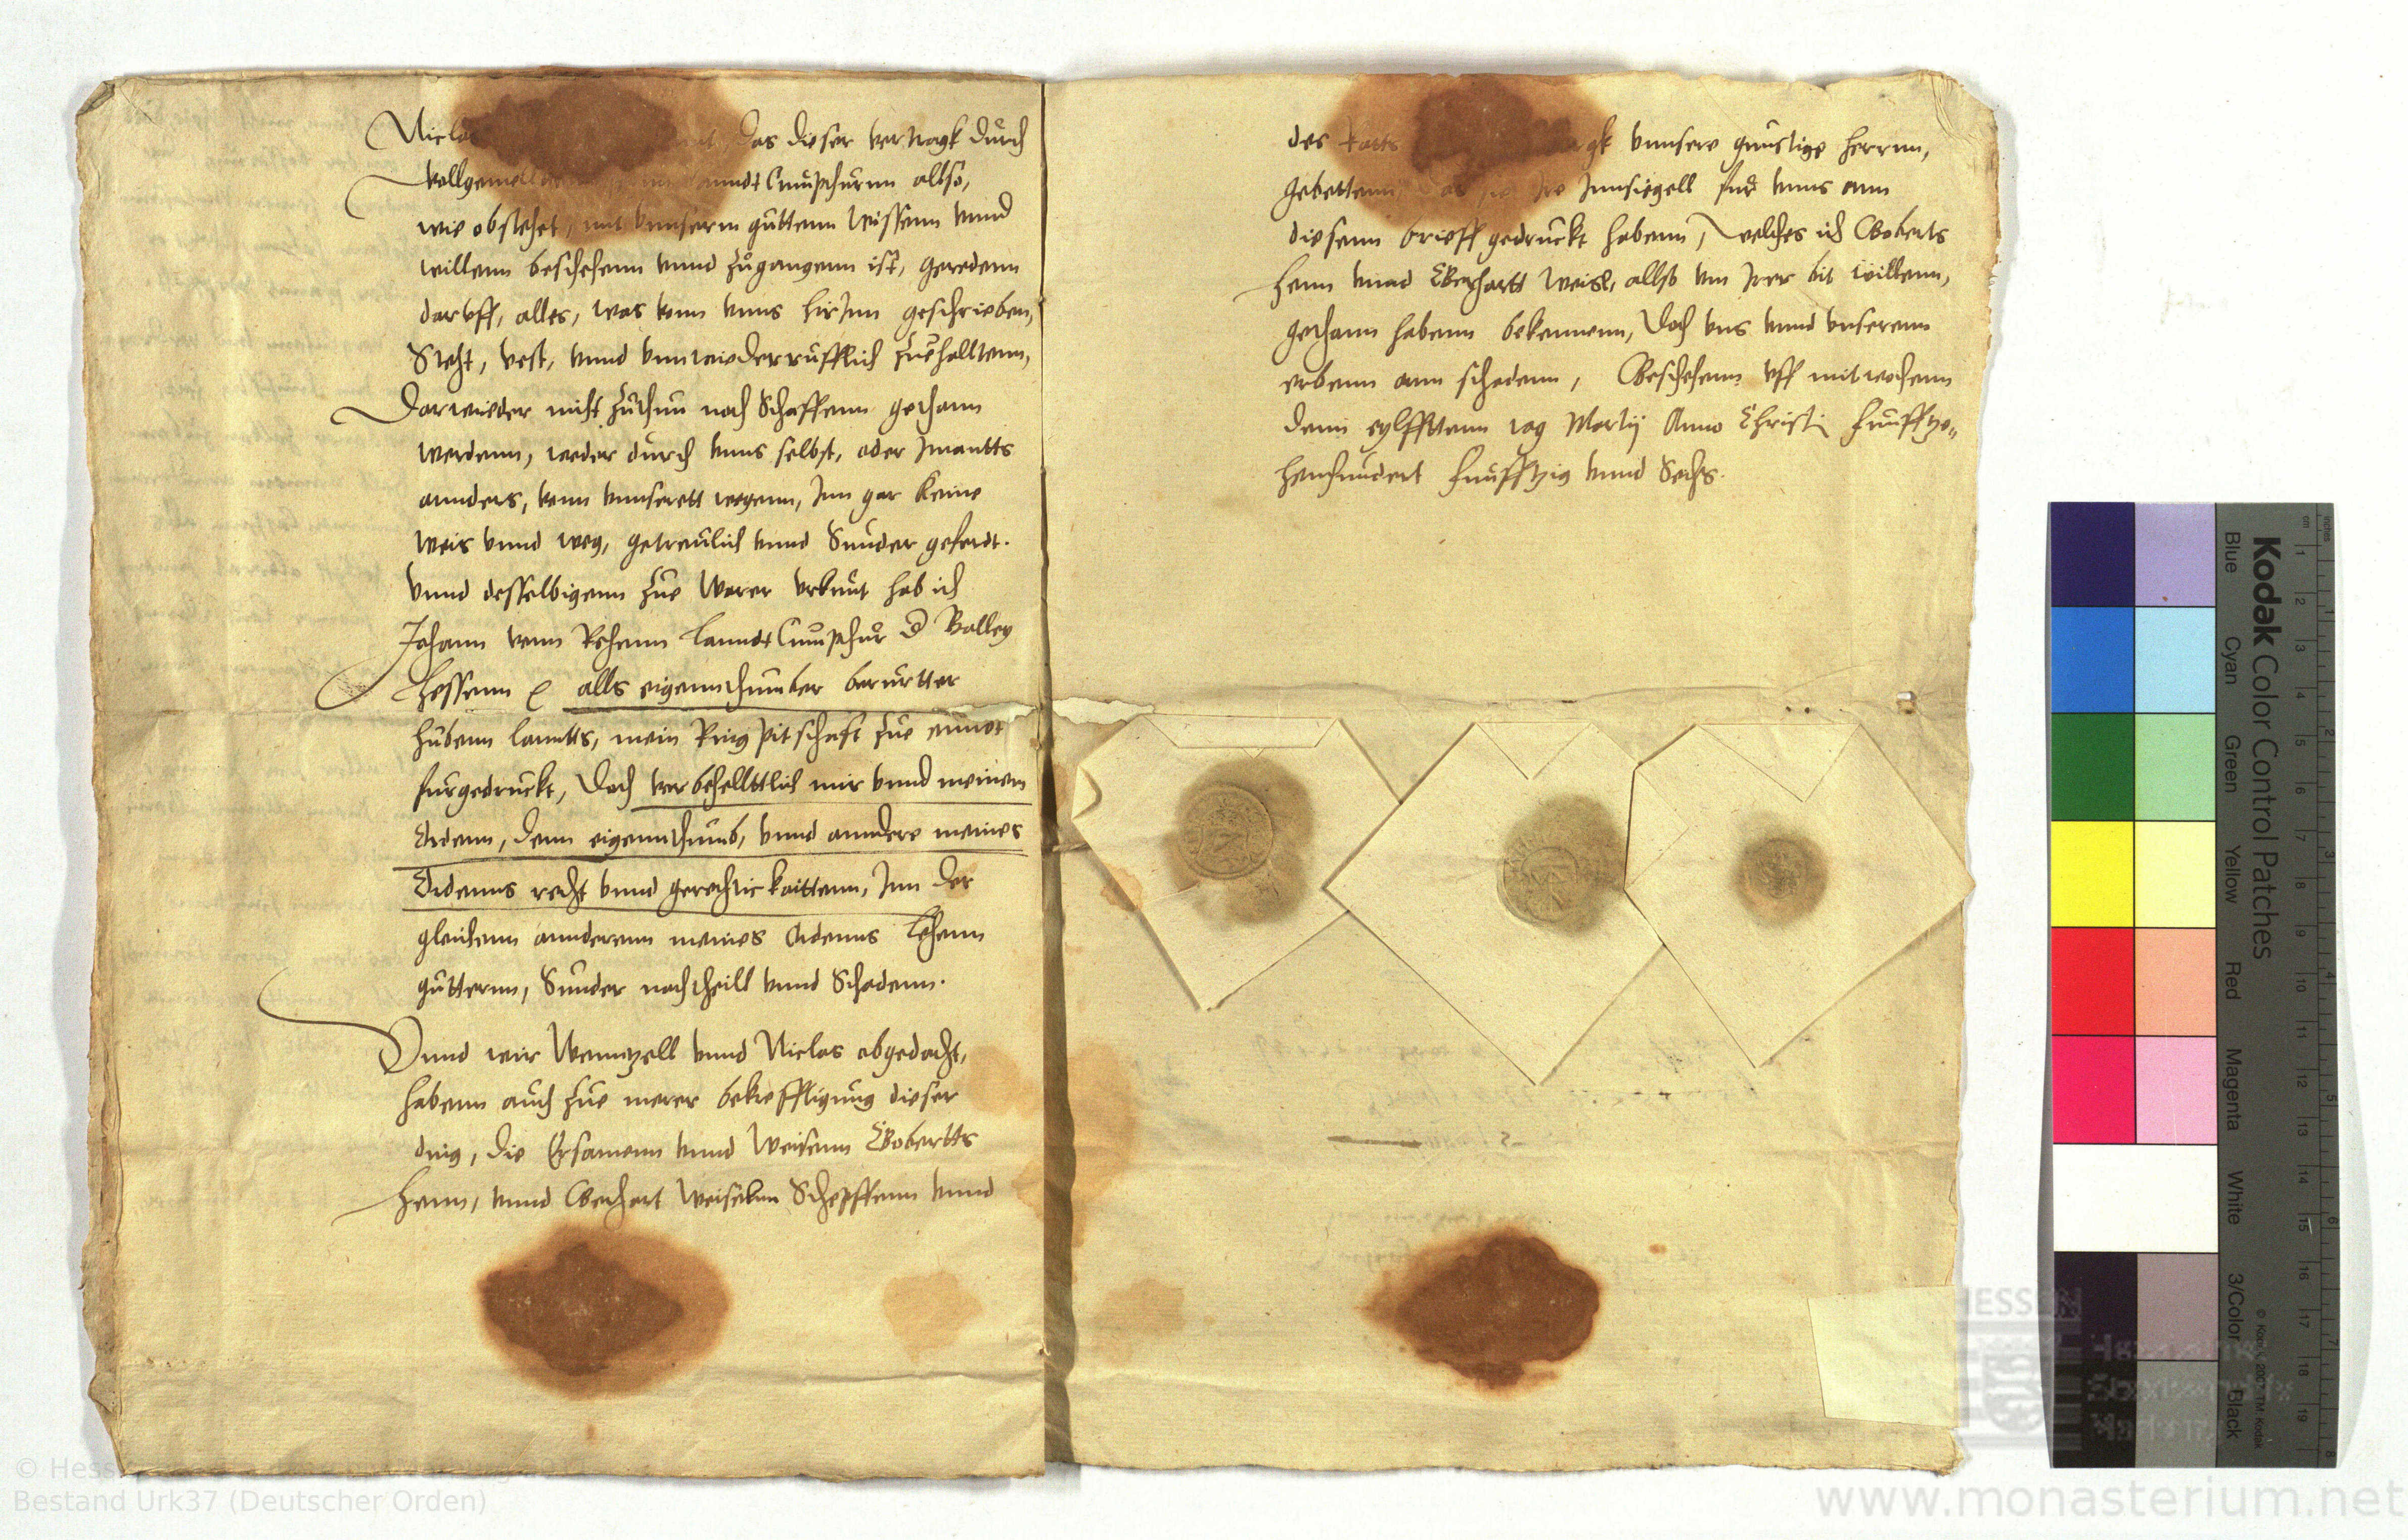 das dieser vertragk durch
Lanndt Cumpthurnn allso,
wie obstehet, mit vnnserm guttenn wissenn vnnd
willenn beschehenn vnnd zugangenn ist, Geredenn
daruff, alles, was vonn vnns hirInn geschrieben,
Steht, vest, vnnd vnnwiederrufflich zue halltenn,
Darwieder nicht zuthun noch Schaffenn gethann
werdenn, weder durch vnns selbst, oder Imantts
annders, vonn vnnserett wegenn, Inn gar keine
weis vnnd weg, getreulich vnnd Sunder geferdt.
Vnnd desselbigenn zue warer vrkunt hab ich
Johann vonn Rehenn Lanndt Cumpthur d Balley
Hessenn alls eigennthumber berurtter
hubenn lanntts, mein Ring pitschafft zue ennt
furgedruckt, Doch vorbehelltlich mir vnnd meinem
Ordenn, denn eigennthumb, vnnd anndere meines
Ordenns recht vnnd gerechtickaittenn, Inn der
gleichenn annderenn meines Ordenns Lehenn
gutternn, Sunder nachtheill vnnd Schadenn.
Vnnd wir Wenntzell vnnd Niclas obgedacht,
habenn auch zue merer bekrefftigung dieser
ding, die Ersamenn vnnd Weisenn Goberts
Henn, vnnd Gerhart Weiseln Schepffenn vnnd
des Ratts vnnsere gunstige Herrnn,
Gebettenn, Innsiegell fur vnns ann
diesenn brieff gedruckt habenn, welches ich Goberts
Henn vnnd Gerhartt Weisl, allso vm Irer bit willenn,
gethann habenn bekennenn, Doch vns vnnd vnserenn
erbenn ann schadenn, Geschehenn vff mitwochenn
denn eylfftenn tag Martij Anno Christi funfftze-
henhundert funfftzig vnnd Sechs.
Kodak Color Control Patches
Blue Cyan Green Yellow Red Magenta White 3/Color Black
Bestand Urk37 (Deutscher Orden)
www.monasterium.net